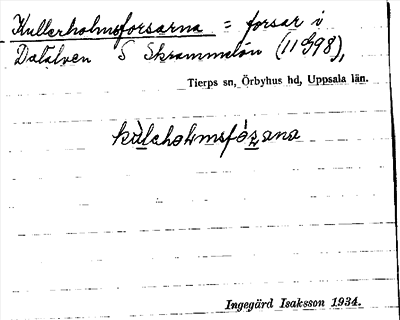 Kullerholmsforsarna = forsar i
Dalälven S Skrammelön (11 G98),
Tierps sn, Örbyhus hd, Uppsala län.
Ingegärd Isaksson 1934.